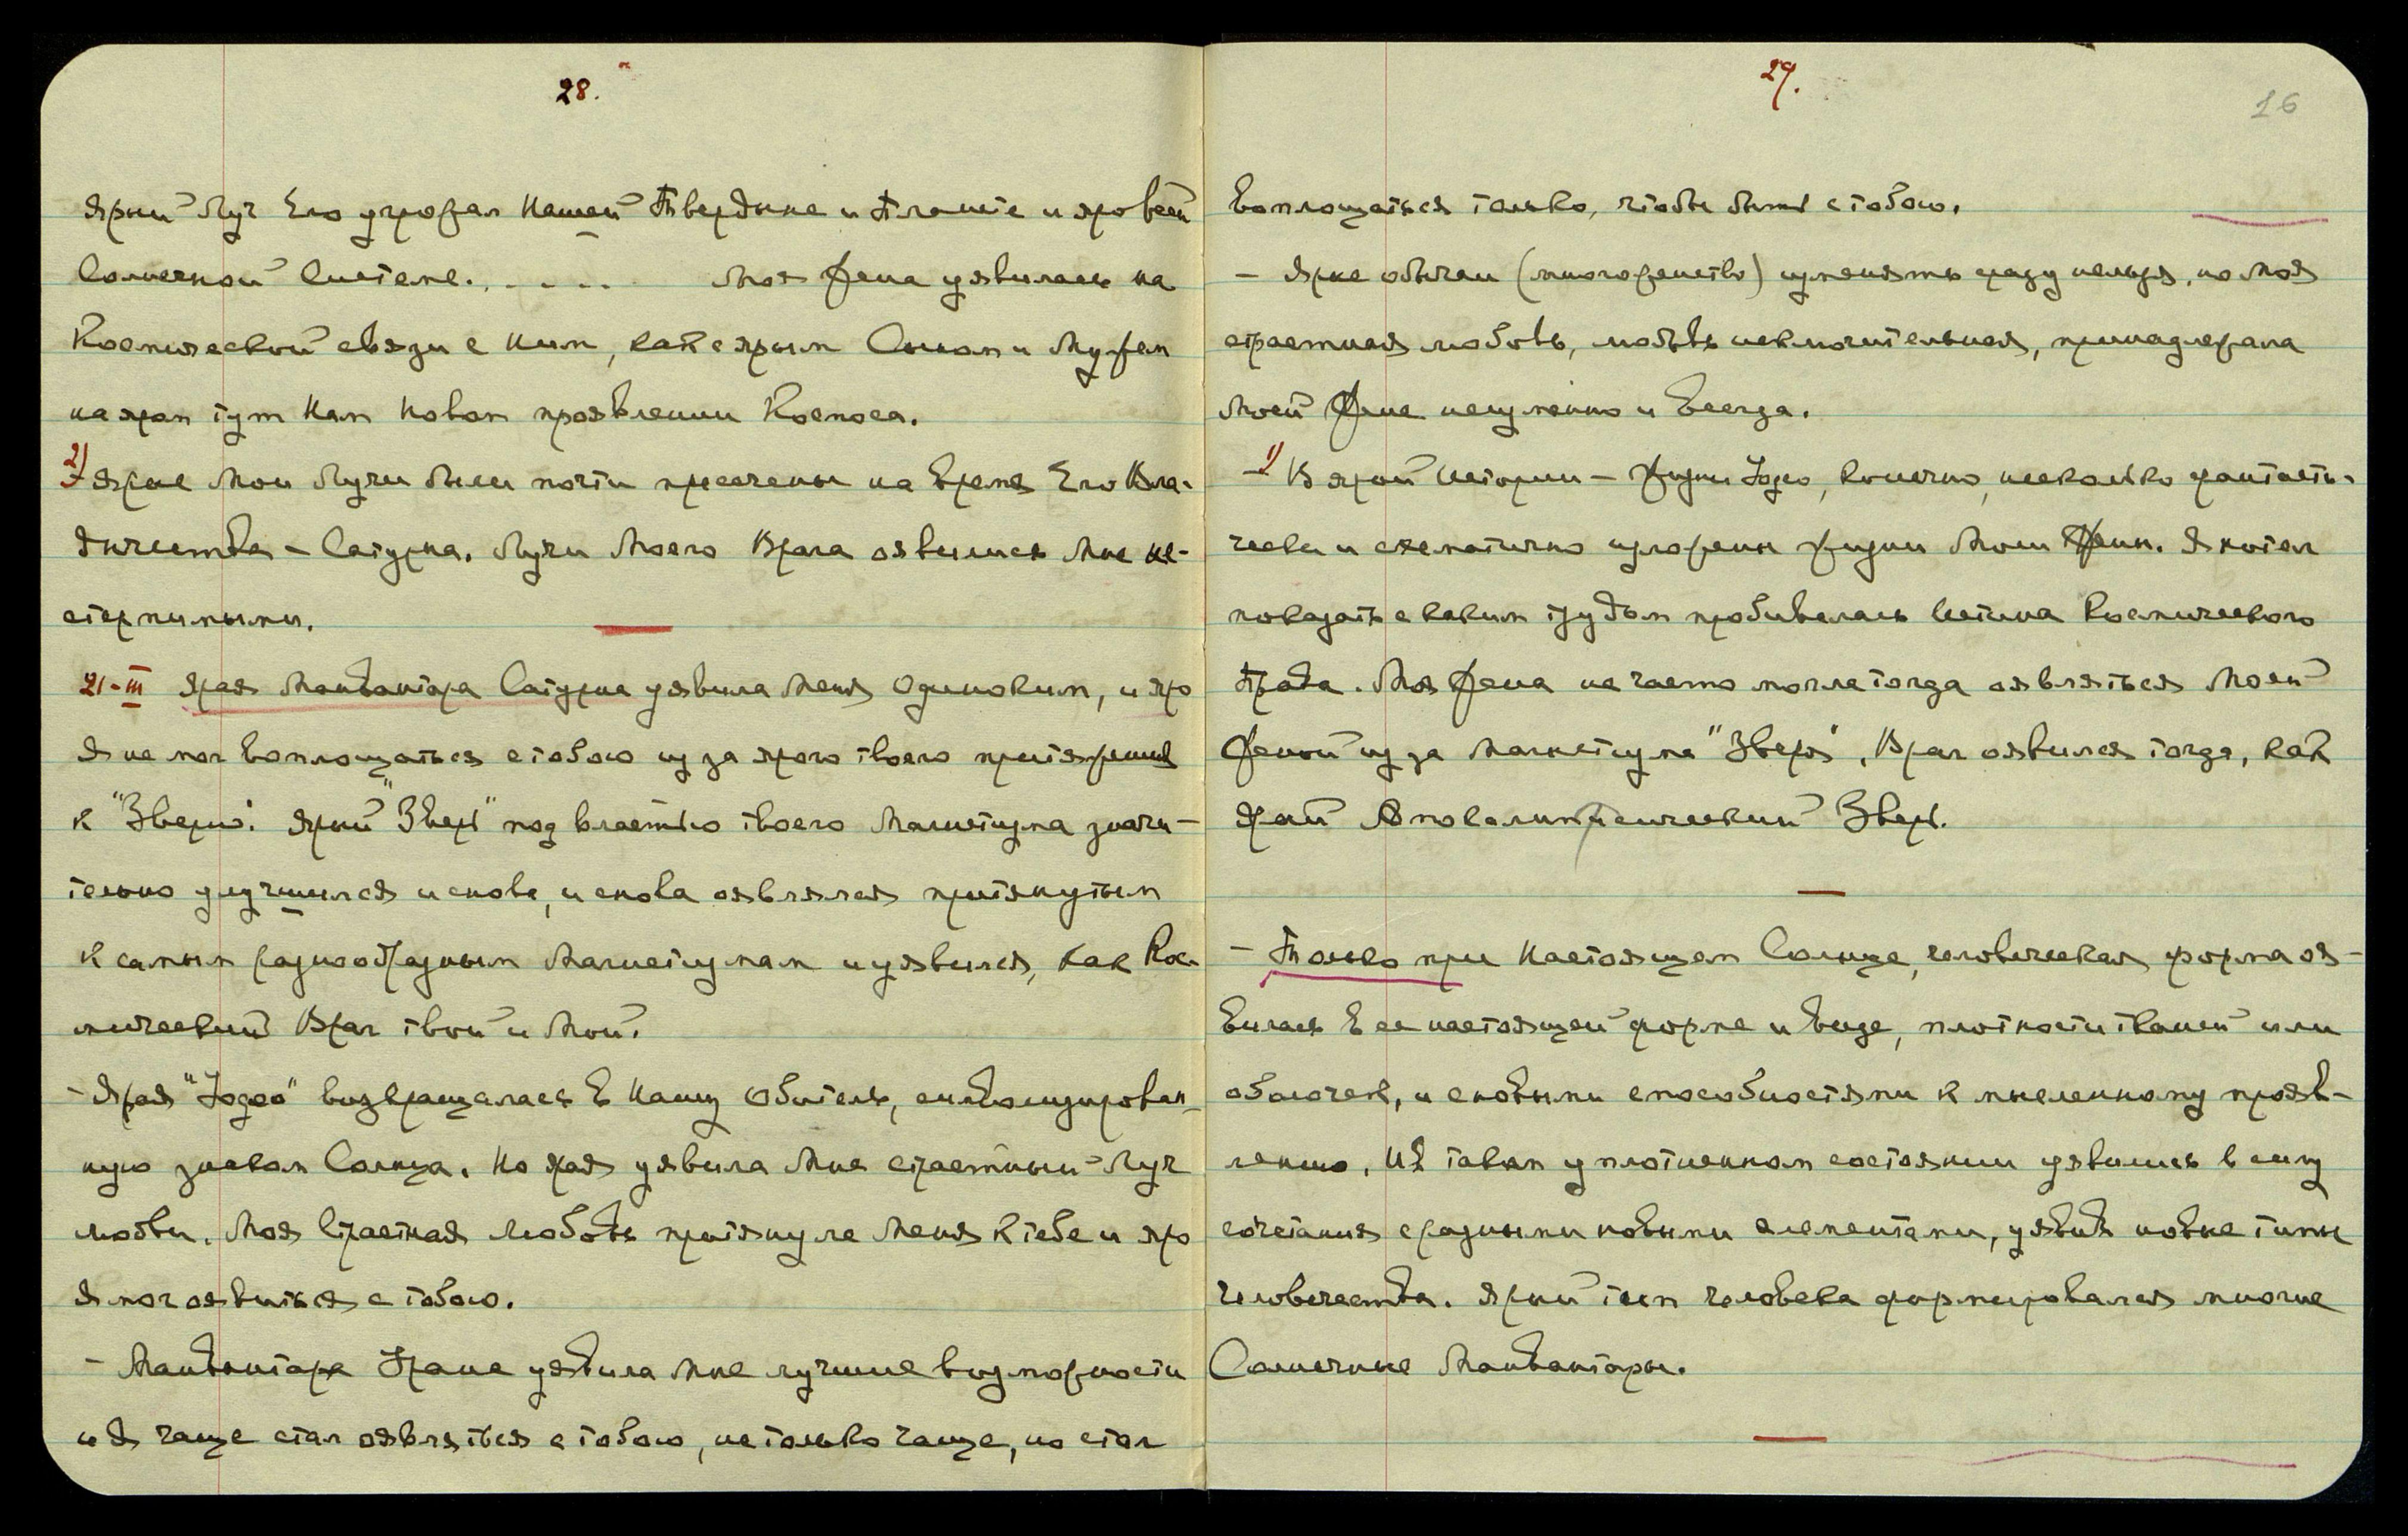 28.
Ярый Луч Его угрожал Нашей Твердыне и Планете и яро всей
Солнечной Системе. . . . . . Моя Жена уявилась на
Космической связи с Ним, как с ярым Сыном и Мужем
на яром тут Нам Новом проявлении Космоса.
2) Ярые Мои Лучи были почти пресечены на время Его Вла-
дычества - Сатурна. Лучи Моего Врага оявились Мне не-
стерпимыми.
21-III Ярая Манвантара Сатурна уявила Меня Одиноким, и яро
Я не мог воплощаться с тобою из за ярого твоего притяжения
к "Зверю". Ярый "Зверь" под властью твоего Магнетизма значи-
тельно улучшился и снова, и снова оявлялся притянутым
к самым разнообразным Магнетизмам и уявился, как Кос-
мический Враг твой и Мой.
- Ярая "Зодоо" возвращалась в Нашу Обитель, символизирован-
ную знаком Солнца. Но ярая уявила Мне страстный Луч
любви. Моя Страстная Любовь притянула Меня к тебе и яро
Я мог оявиться с тобою.
- Манвантара Урана уявила Мне лучшие возможности
и Я чаще стал оявляться с тобою, не только чаще, но стал
29.
16
воплощаться только, чтобы быть с тобою.
- Ярые обычаи (многоженство) изменять сразу нельзя, но Моя
страстная любовь, любовь исключительная, принадлежала
Моей Жене неизменно и всегда.
- 1) В ярой Истории - Жизни Зодоо, конечно, несколько фантасти-
чески и схематично изложены жизни Моей Жены. Я хотел
показать с каким трудом пробивалась Истина Космического
Права. Моя Жена не часто могла тогда оявляться Моей
Женой из за Магнетизма "Зверя". Враг оявился тогда, как
ярый Апокалипсический Зверь.
- Только при Настоящем Солнце, человеческая форма оя-
вилась в ее настоящей форме и виде, плотности тканей или
оболочек, и с новыми способностями к мысленному прояв-
лению. Из таком уплотненном состоянии уявились в силу
сочетания с разными новыми элементами, уявив новые типы
человечества. Ярый тип человека формировался многие
Солнечные Манвантары.